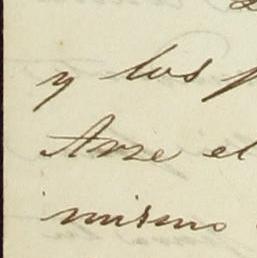 y los
Arze el
mismo